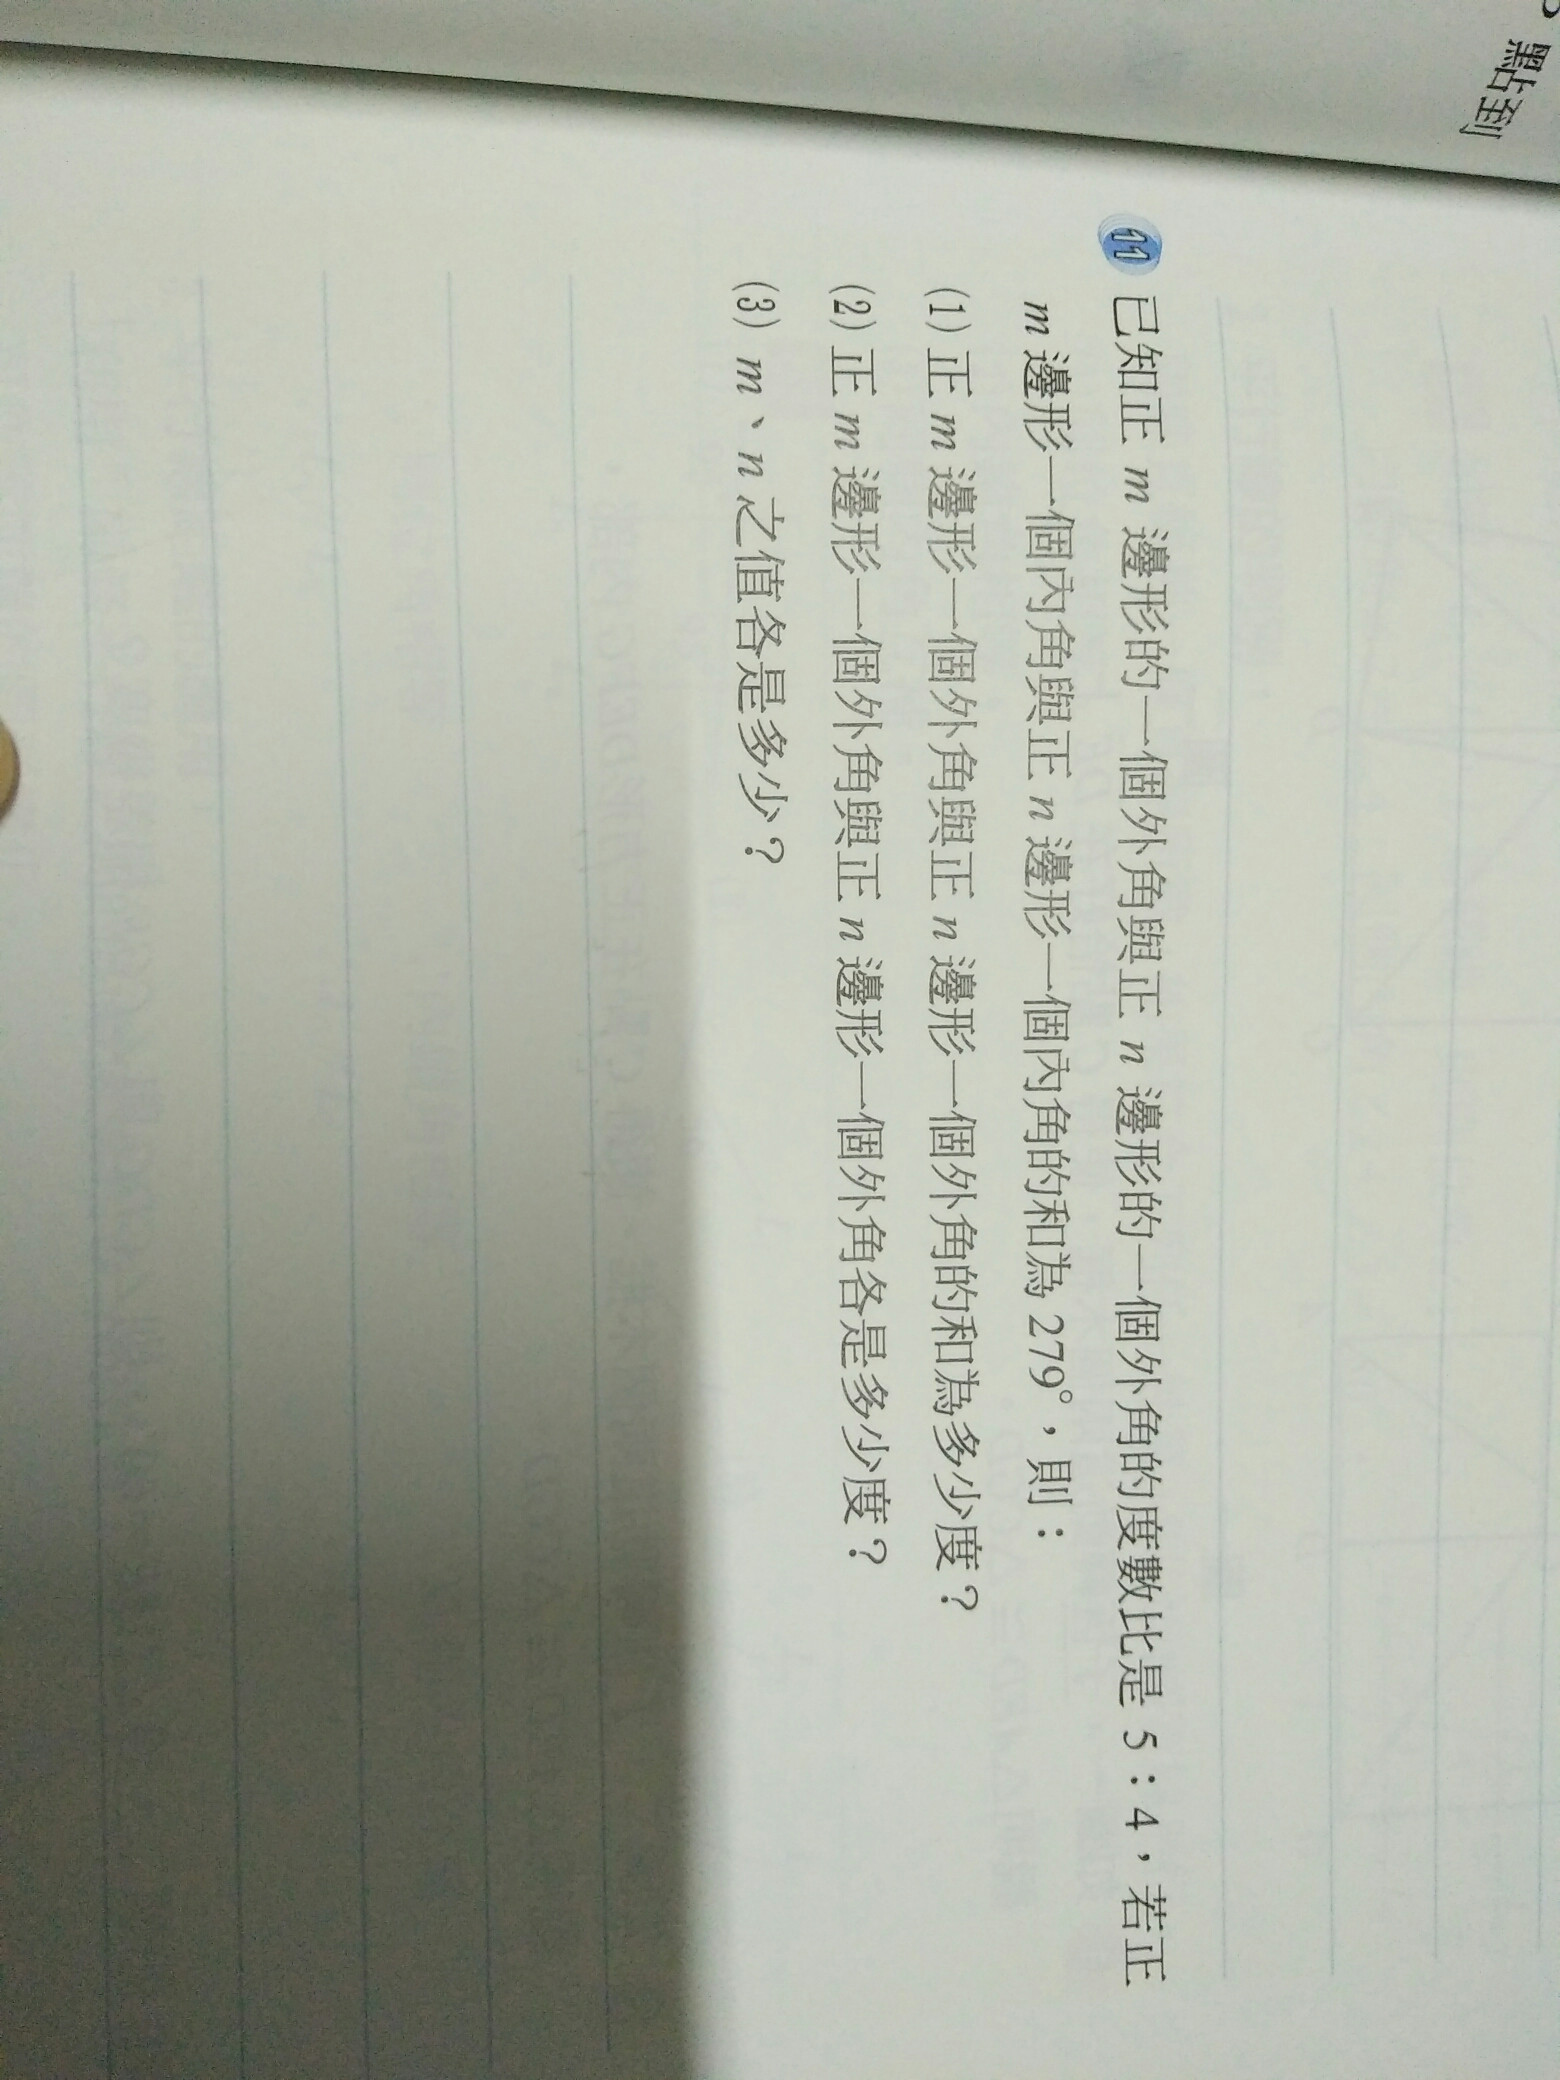 點到
11 已知正 m 邊形的一個外角與正 n 邊形的一個外角的度數比是 5：4，若正
m 邊形一個內角與正 n 邊形一個內角的和為 279°，則：
(1) 正 m 邊形一個外角與正 n 邊形一個外角的和為多少度？
(2) 正 m 邊形一個外角與正 n 邊形一個外角各是多少度？
(3) m、n 之值各是多少？